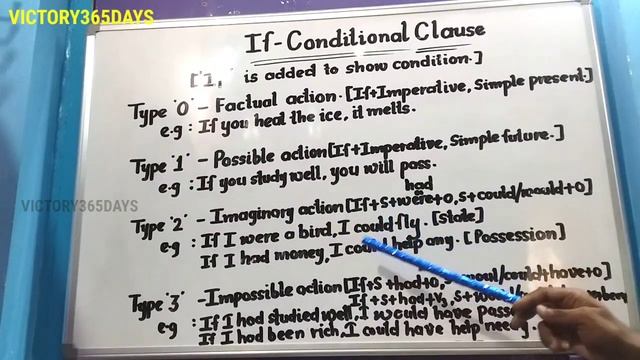 VICTORY365DAYS
If-Conditional Clause
['1,' is added to show condition.]
Type '0' - Factual action. [If+Imperative, Simple present.]
e.g : If you heat the ice, it melts.
Type '1' - Possible action [If+Imperative, Simple future.]
e.g : If you study well, you will pass.
had
Type '2' - Imaginary action [If+S+were+O, S+could/would+O]
VICTORY365DAYS
e.g : If I were a bird, I could fly. [State]
If I had money, I could help any. [Possession]
Type '3' - Impossible action [If+S+had+O, could+have+O]
If+S+had+V3, S+
eg : If I had studied well, I would have passed
If I had been rich, I could have help needy.